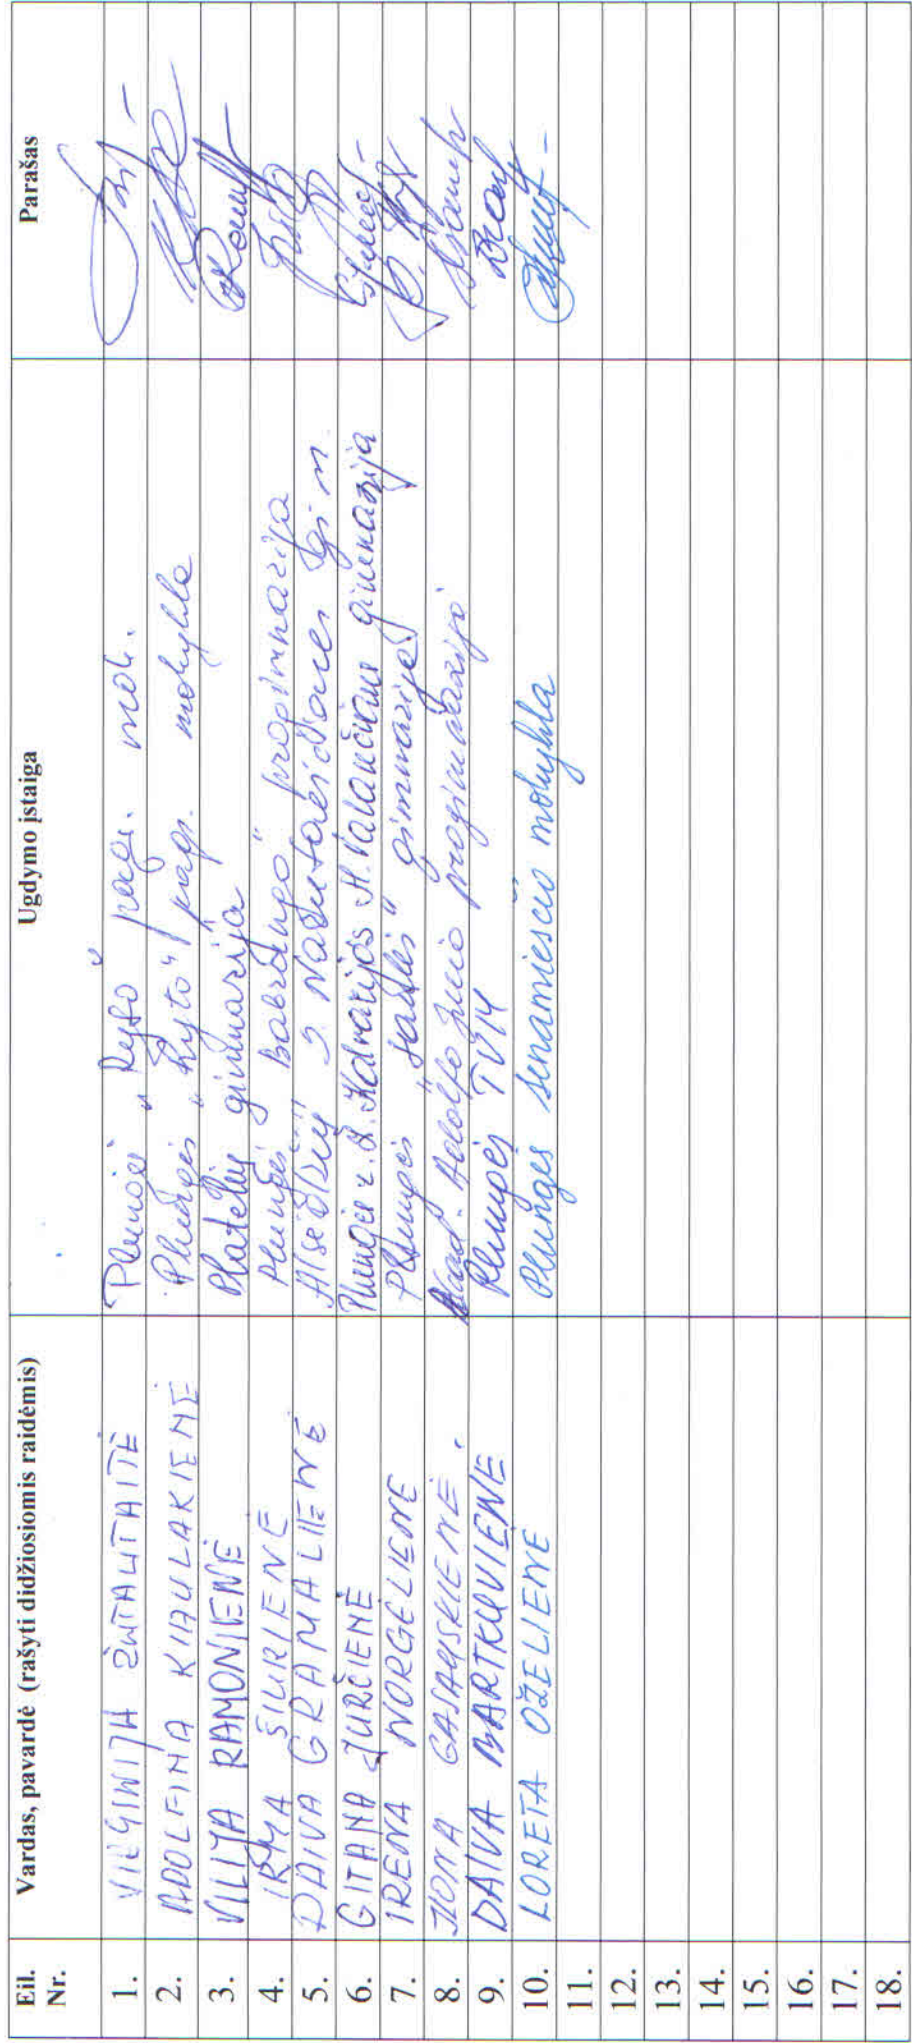 Eil. Nr. Vardas, pavardė (rašyti didžiosiomis raidėmis) Ugdymo įstaiga Parašas
1. VIRGINIJA ŽUTAUTAITĖ Plungės „Ryto“ pagr. mok.
2. ADOLFINA KIAULAKIENĖ Plungės „Ryto“ pagr. mokykla
3. VILIJA RAMONIENĖ Platelių gimnazija
4. IRMA ŠIURIENĖ Plungės „Babrungo“ progimnazija
5. DAIVA GRAMALIENĖ Alsėdžių S. Narutavičiaus gimn.
6. GITANA JURČIENĖ Plungės r. Ž. Kalvarijos M. Valančiaus gimnazija
7. IRENA NORGELIENE Plungės „Saulės“ gimnazija
8. ILONA Akad. Adolfo Jucio progimnazija
9. DAIVA BARTKUVIENE Plungės TVM
10. LORETA OŽELIENE Plungės senamiesčio mokykla
11.
12.
13.
14.
15.
16.
17.
18.